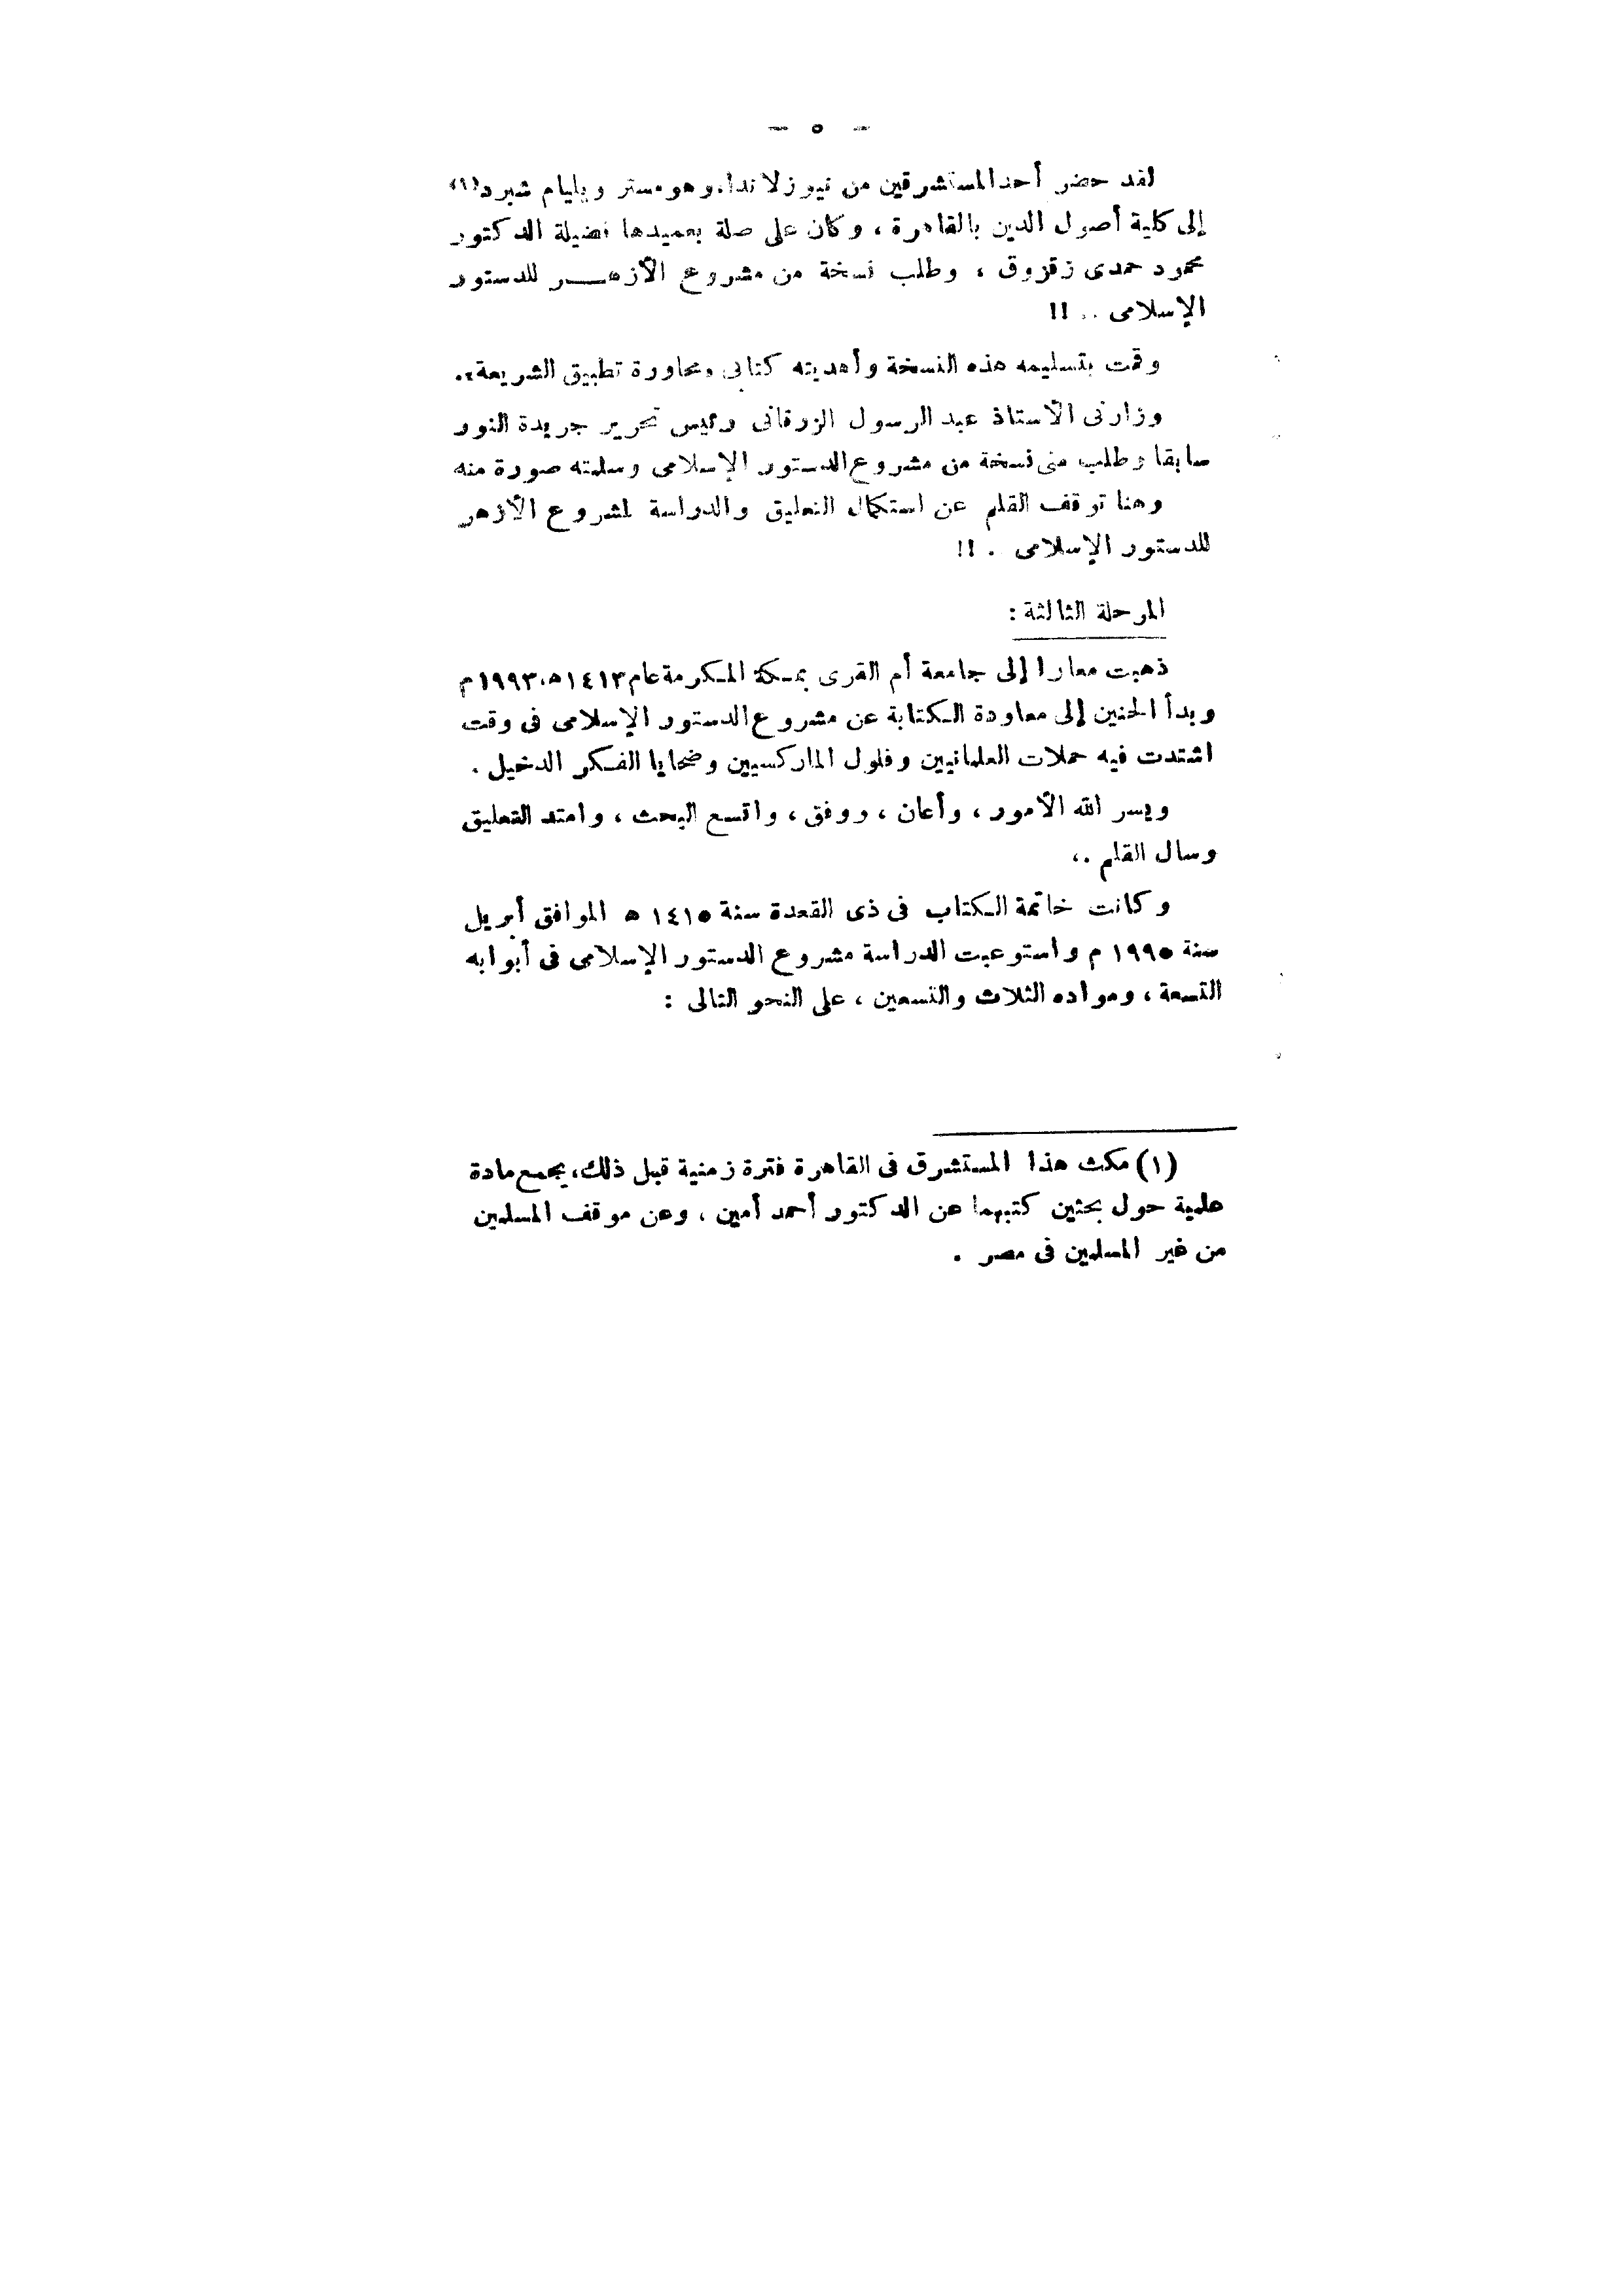 — ٥ —
لقد حضر أحد المستشرقين من نيوزلاندا، وهو مستر ويليام شبرد (١)
إلى كلية أصول الدين بالقاهرة ، وكان على صلة بعميدها فضيلة الدكتور
محمود حمدى زقزوق ، وطلب نسخة من مشروع الأزهـــر للدستور
الإسلامى .. !!
وقمت بتسليمه هذه النسخة وأهديته كتابى «محاورة تطبيق الشريعة».
وزارنى الأستاذ عبد الرسول الزرقانى رئيس تحرير جريدة النور
سابقا وطلب منى نسخة من مشروع الدستور الإسلامى وسلمته صورة منه
وهنا توقف القلم عن استكمال التعليق والدراسة لمشروع الأزهر
للدستور الإسلامى . !!
المرحلة الثالثة :
ذهبت معارا إلى جامعة أم القرى بمكة المكرمة عام ١٤١٣هـ، ١٩٩٣م
وبدأ الحنين إلى معاودة الكتابة عن مشروع الدستور الإسلامى فى وقت
اشتدت فيه حملات العلمانيين وفلول الماركسيين وضحايا الفكر الدخيل .
ويسر الله الأمور ، وأعان ، ووفق ، واتسع البحث ، وامتد التعليق
وسال القلم .،
وكانت خاتمة الكتاب فى ذى القعدة سنة ١٤١٥ هـ الموافق أبريل
سنة ١٩٩٥ م واستوعبت الدراسة مشروع الدستور الإسلامى فى أبوابه
التسعة ، ومواده الثلاث والتسعين ، على النحو التالى :
(١) مكث هذا المستشرق فى القاهرة فترة زمنية قبل ذلك، يجمع مادة
علمية حول بحثين كتبهما عن الدكتور أحمد أمين ، وعن موقف المسلمين
من غير المسلمين فى مصر .